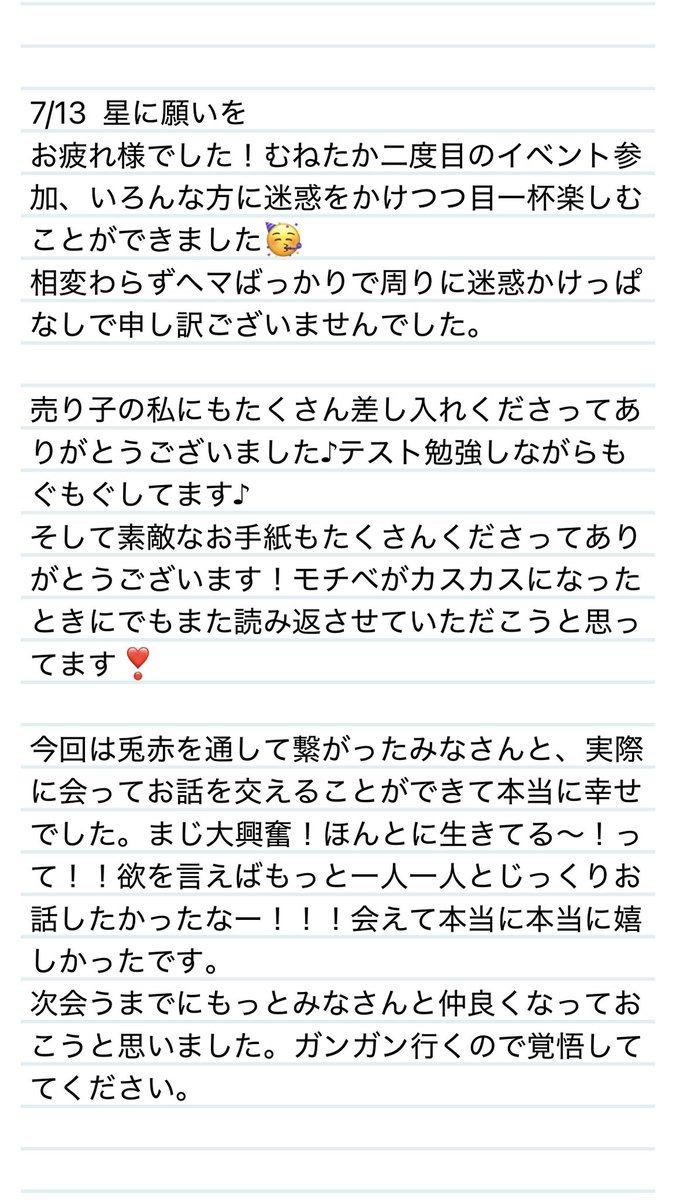 7/13 星に願いを
お疲れ様でした！むねたか二度目のイベント参
加、いろんな方に迷惑をかけつつ目一杯楽しむ
ことができました🥳
相変わらずヘマばっかりで周りに迷惑かけっぱ
なしで申し訳ございませんでした。
売り子の私にもたくさん差し入れくださってあ
りがとうございました♪テスト勉強しながらも
ぐもぐしてます♪
そして素敵なお手紙もたくさんくださってあり
がとうございます！モチベがカスカスになった
ときにでもまた読み返させていただこうと思っ
てます❣️
今回は兎赤を通して繋がったみなさんと、実際
に会ってお話を交えることができて本当に幸せ
でした。まじ大興奮！ほんとに生きてる〜！っ
て！！欲を言えばもっと一人一人とじっくりお
話したかったなー！！！会えて本当に本当に嬉
しかったです。
次会うまでにもっとみなさんと仲良くなってお
こうと思いました。ガンガン行くので覚悟して
てください。